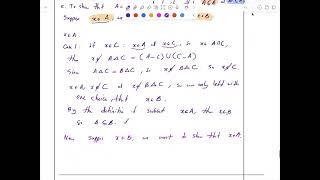 c. To show that A =
Suppose x ∈ A,
x ∈ A.
Case 1: If x ∈ C: x ∈ A & x ∈ C, so x ∈ A∩C,
then x ∉ A △ C = (A-C) ∪ (C-A)
Since A △ C = B △ C, so x ∉ B △ C, so
x ∈ A, x ∉ C & x ∉ B △ C, so we only left with
one choice, that x ∈ B.
By the definition of subset x ∈ A, then x ∈ B
so A ⊆ B. ✓
Now suppose x ∈ B, we want to show that x ∈ A.